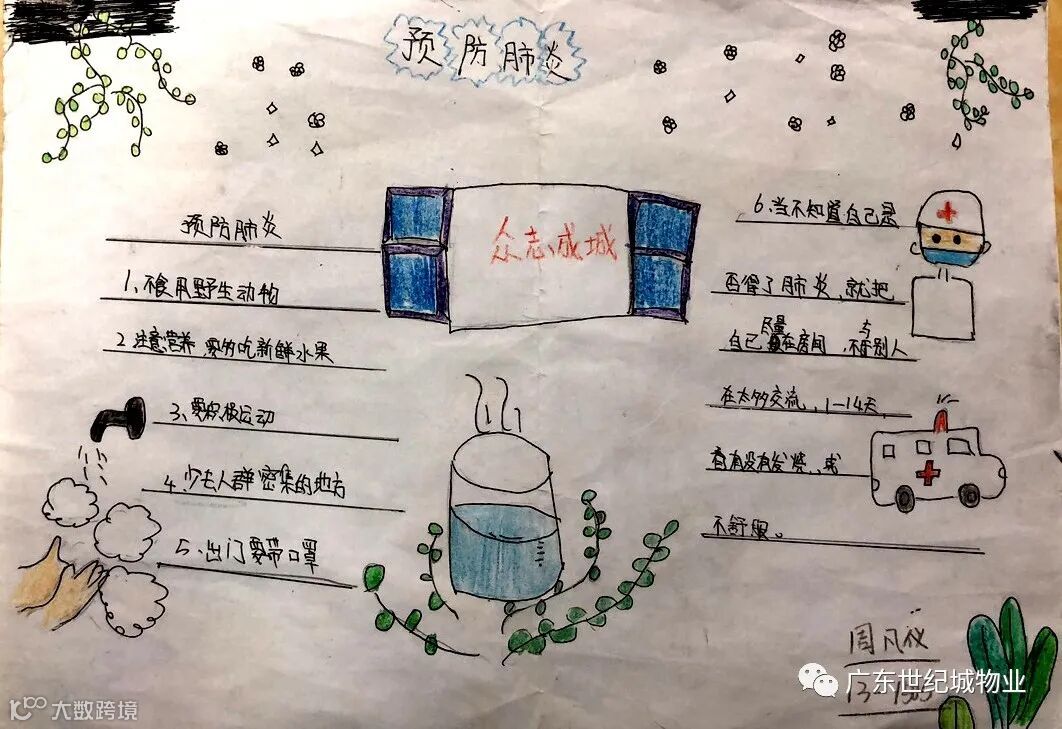 预防肺炎
众志成城
预防肺炎
1、不食用野生动物
2 注意营养 要多吃新鲜水果
3、要积极运动
4、少去人群密集的地方
5、出门要带口罩
6、当不知道自己是
否得了肺炎,就把
自己尽量在房间,不与别人
在太多交流,1—14天,
看有没有发烧,或
不舒服。
周凡仪
13-1503
广东世纪城物业
大数跨境